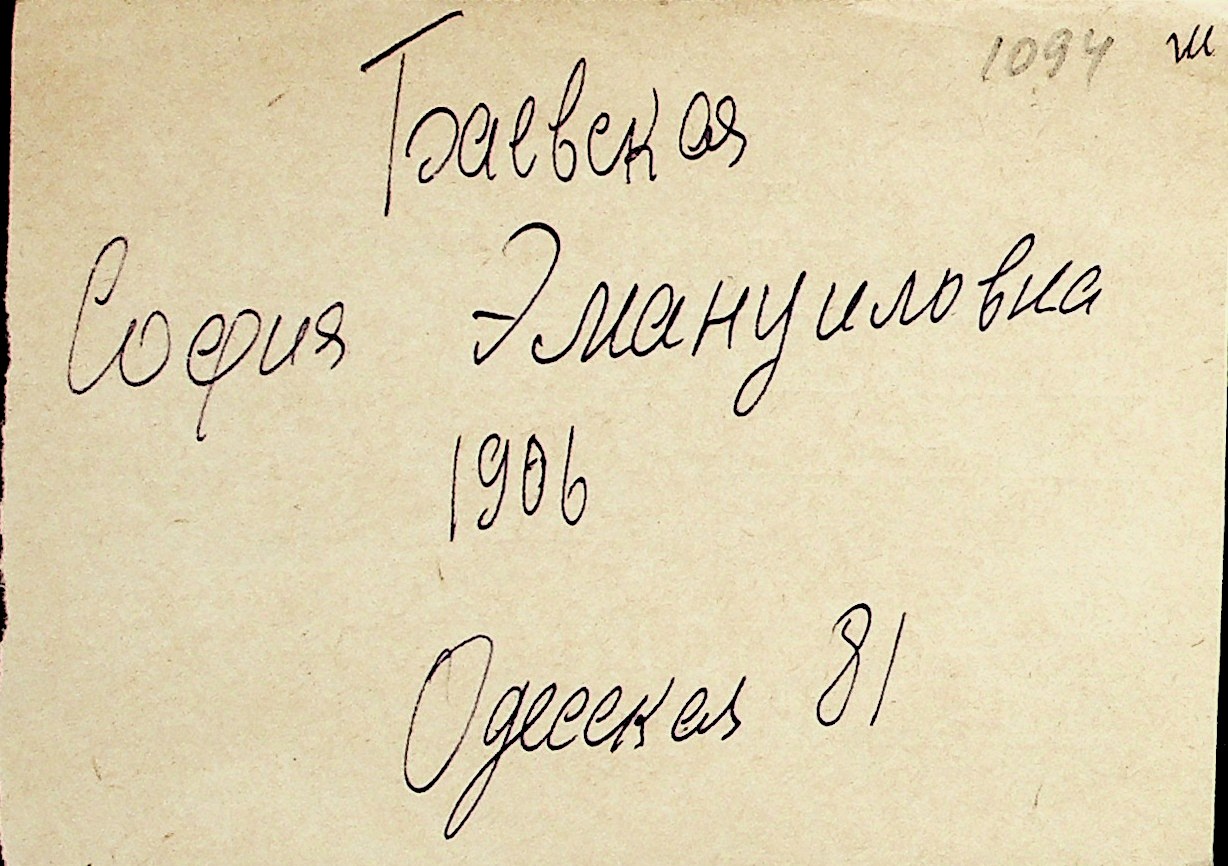 1094
Граевская
София Эмануиловна
1906
Одесская 81